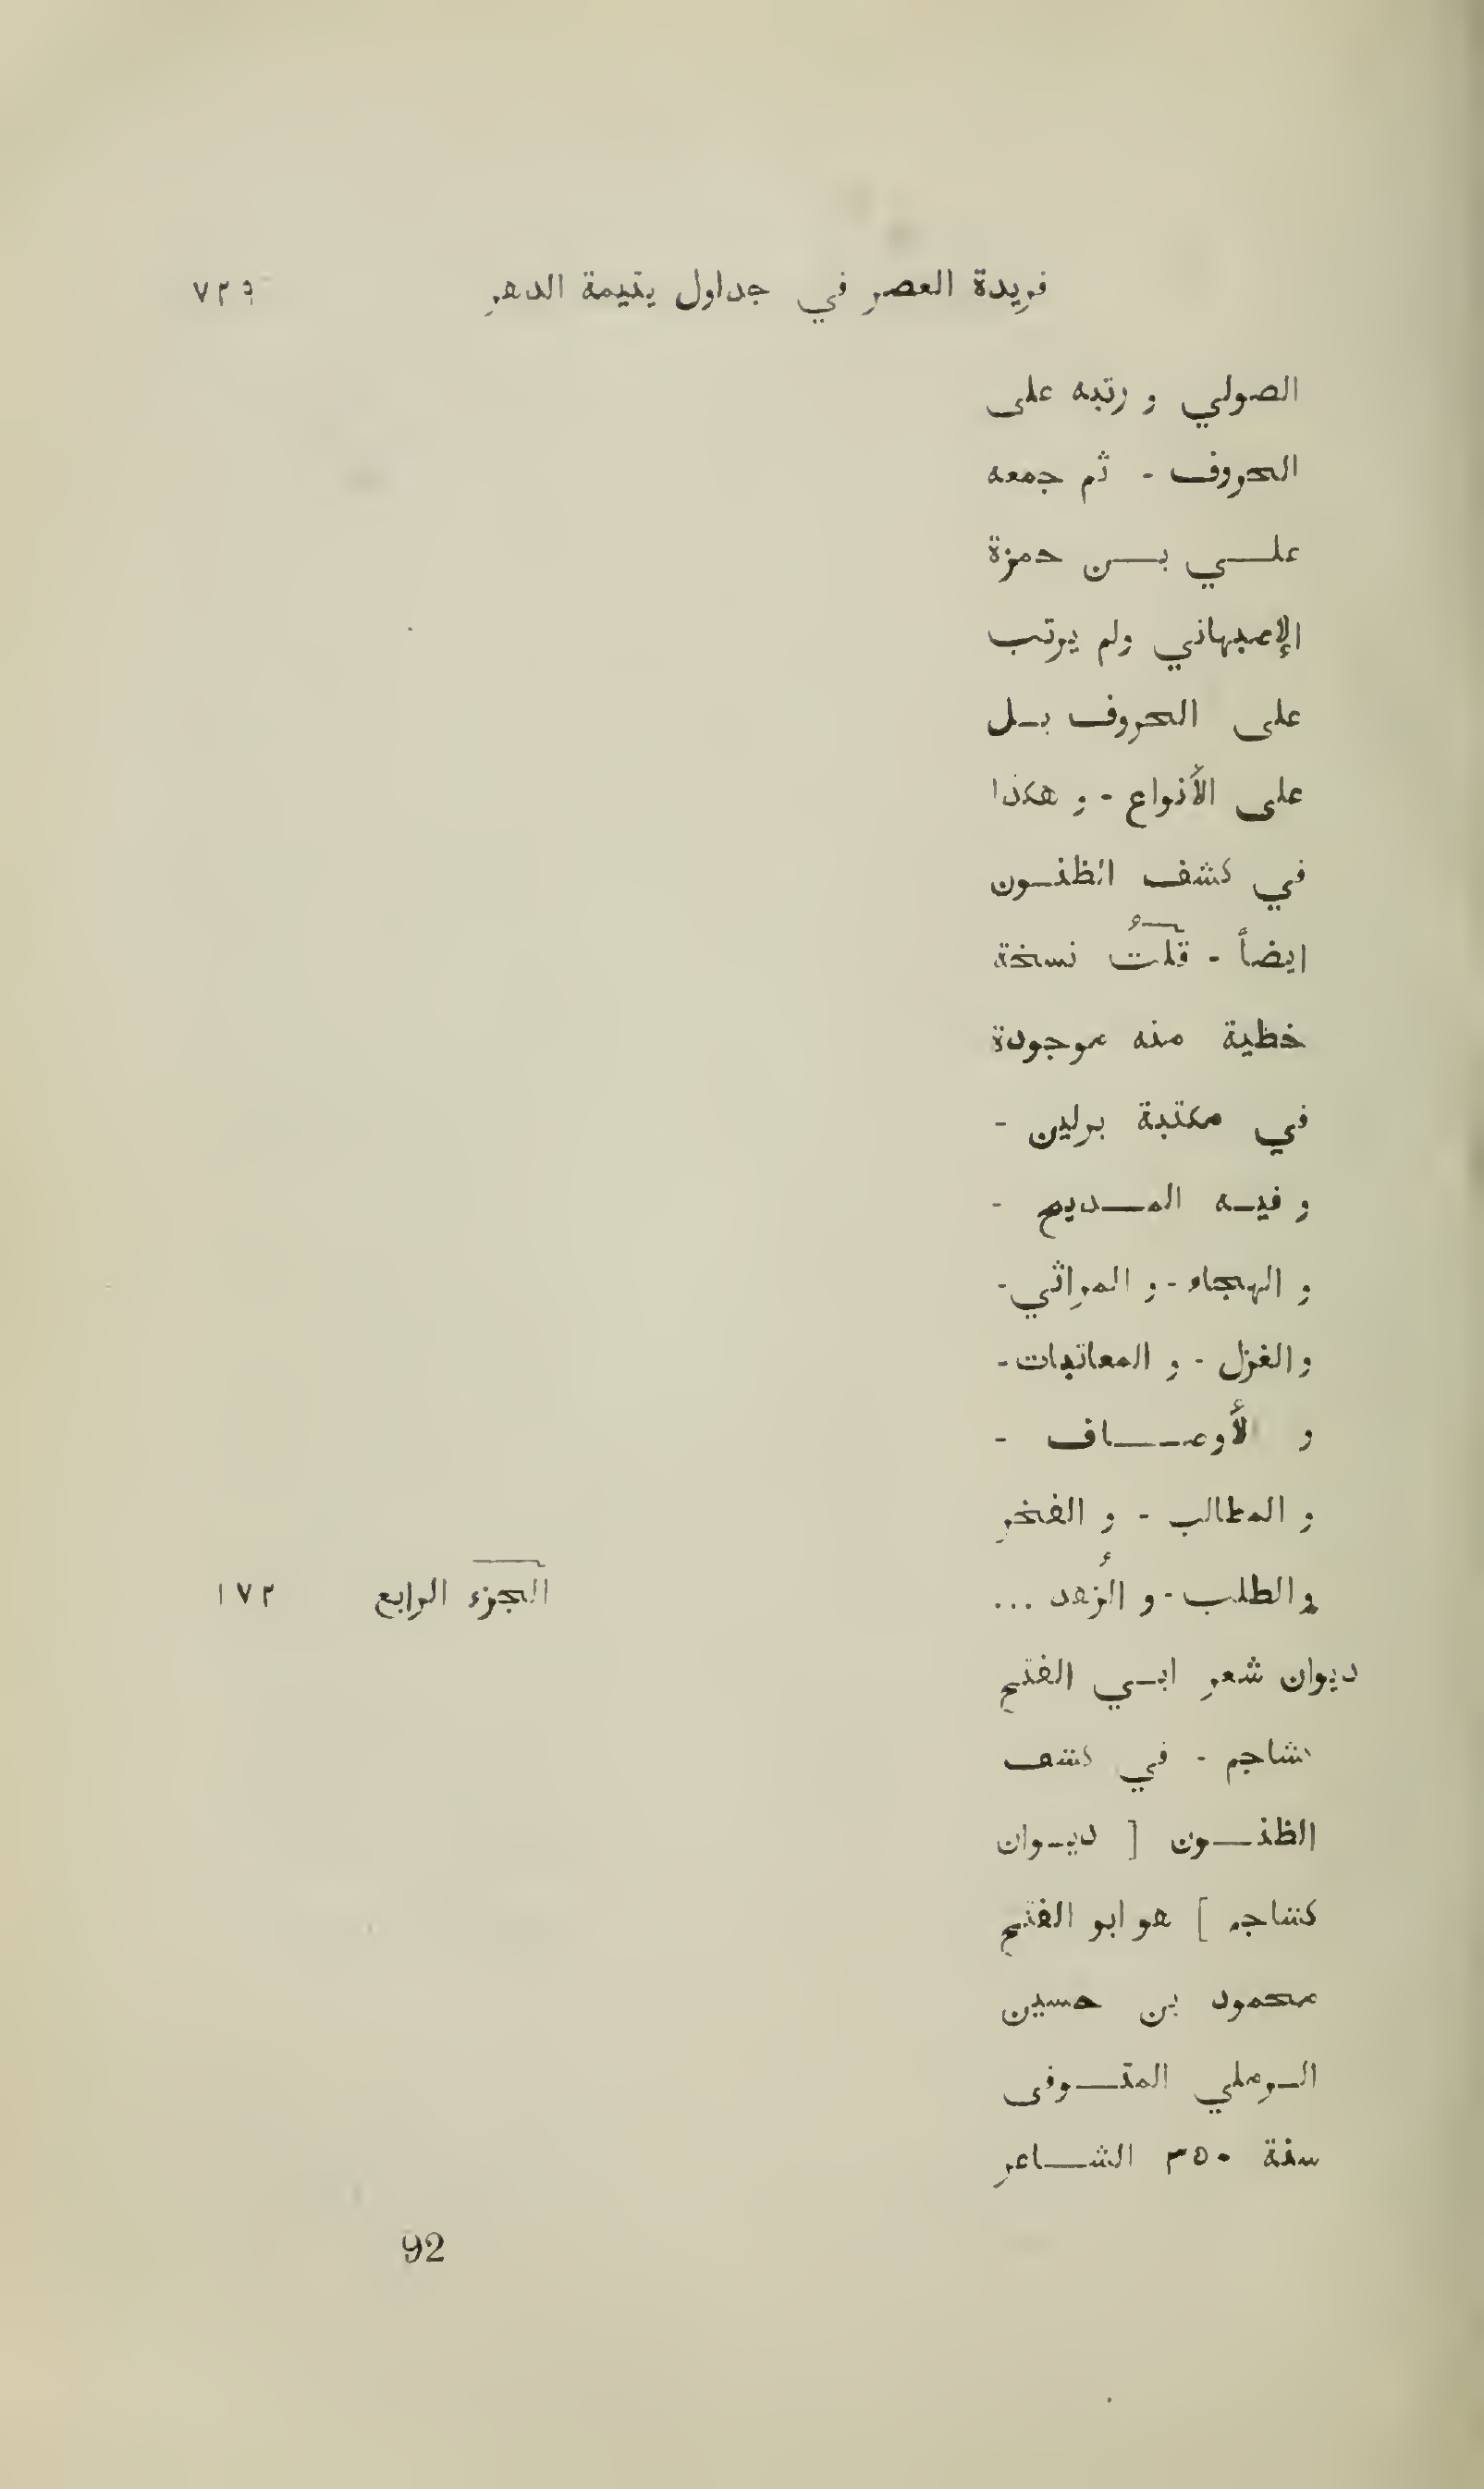 فريدة العصر في جداول يتيمة الدهر ٧٢٩
الصولي و رتبه على
الحروف - ثم جمعه
علي بن حمزة
الإصبهاني ولم يرتب
على الحروف بل
على الأنواع - و هكذا
في كشف الظنون
ايضاً - قلتُ نسخة
خطية منه موجودة
في مكتبة برلين -
و فيه المديح -
و الهجاء - و المراثي -
والغزل - و المعاتبات -
و الأوصاف -
و المطالب - و الفخر
والطلب - و الزهد ... الجزء الرابع ١٧٢
ديوان شعر ابي الفتح
كشاجم - في كشف
الظنون [ ديوان
كشاجم ] هو ابو الفتح
محمود بن حسين
الرملي المتوفى
سنة ٣٥٠ الشاعر
92